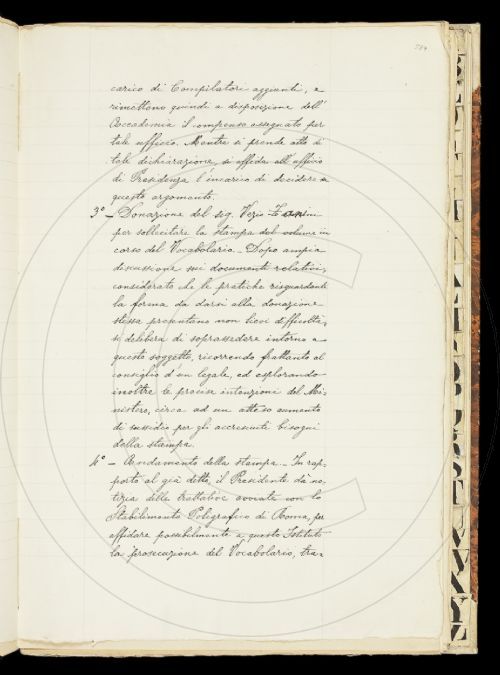 584
carico di Compilatori aggiunti, e
rimettono quindi a disposizione dell'
Accademia il compenso assegnato per
tale ufficio. Mentre si prende atto di
tale dichiarazione, si affida all'ufficio
di Presidenza l'incarico di decidere su
questo argomento.
3º – Donazione del sig. Vezio
per sollecitare la stampa del volume in
corso del Vocabolario – Dopo ampia
discussione sui documenti relativi,
considerato che le pratiche risguardanti
la forma da darsi alla donazione
stessa presentano non lievi difficoltà,
si delibera di soprassedere intorno a
questo soggetto, ricorrendo frattanto al
consiglio d'un legale, ed esplorando
inoltre le precise intenzioni del Mi-
nistero, circa ad un atteso aumento
di sussidio per gli accresciuti bisogni
della stampa.
4º – Andamento della stampa – In rap-
porto al già detto, il Presidente dà no-
tizia delle trattative avviate con lo
Stabilimento Poligrafico di Roma, per
affidare possibilmente a questo Istituto
la prosecuzione del Vocabolario, tra-